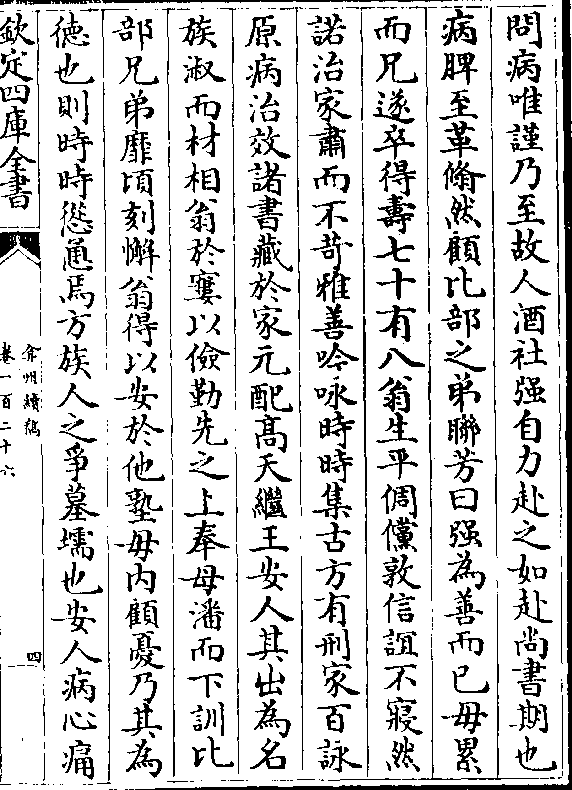 問病唯謹乃至故人酒社强自力赴之如赴尚書期也
病脾至革翛然顧比部之弟聯芳曰强為善而已毋累
而兄遂卒得壽七十有八翁生平倜儻敦信誼不寢然
諾治家肅而不苛雅善吟咏時時集古方有刑家百詠
原病治效諸書藏於家元配高夭繼王安人其出為名
族淑而材相翁於寠以儉勤先之上奉母潘而下訓比
部兄弟靡頃刻懈翁得以安於他塾毋内顧憂乃其為
徳也則時時慫恿焉方族人之爭墓壖也安人病心痛
欽定四庫全書
弇州續稿
卷一百二十六
四